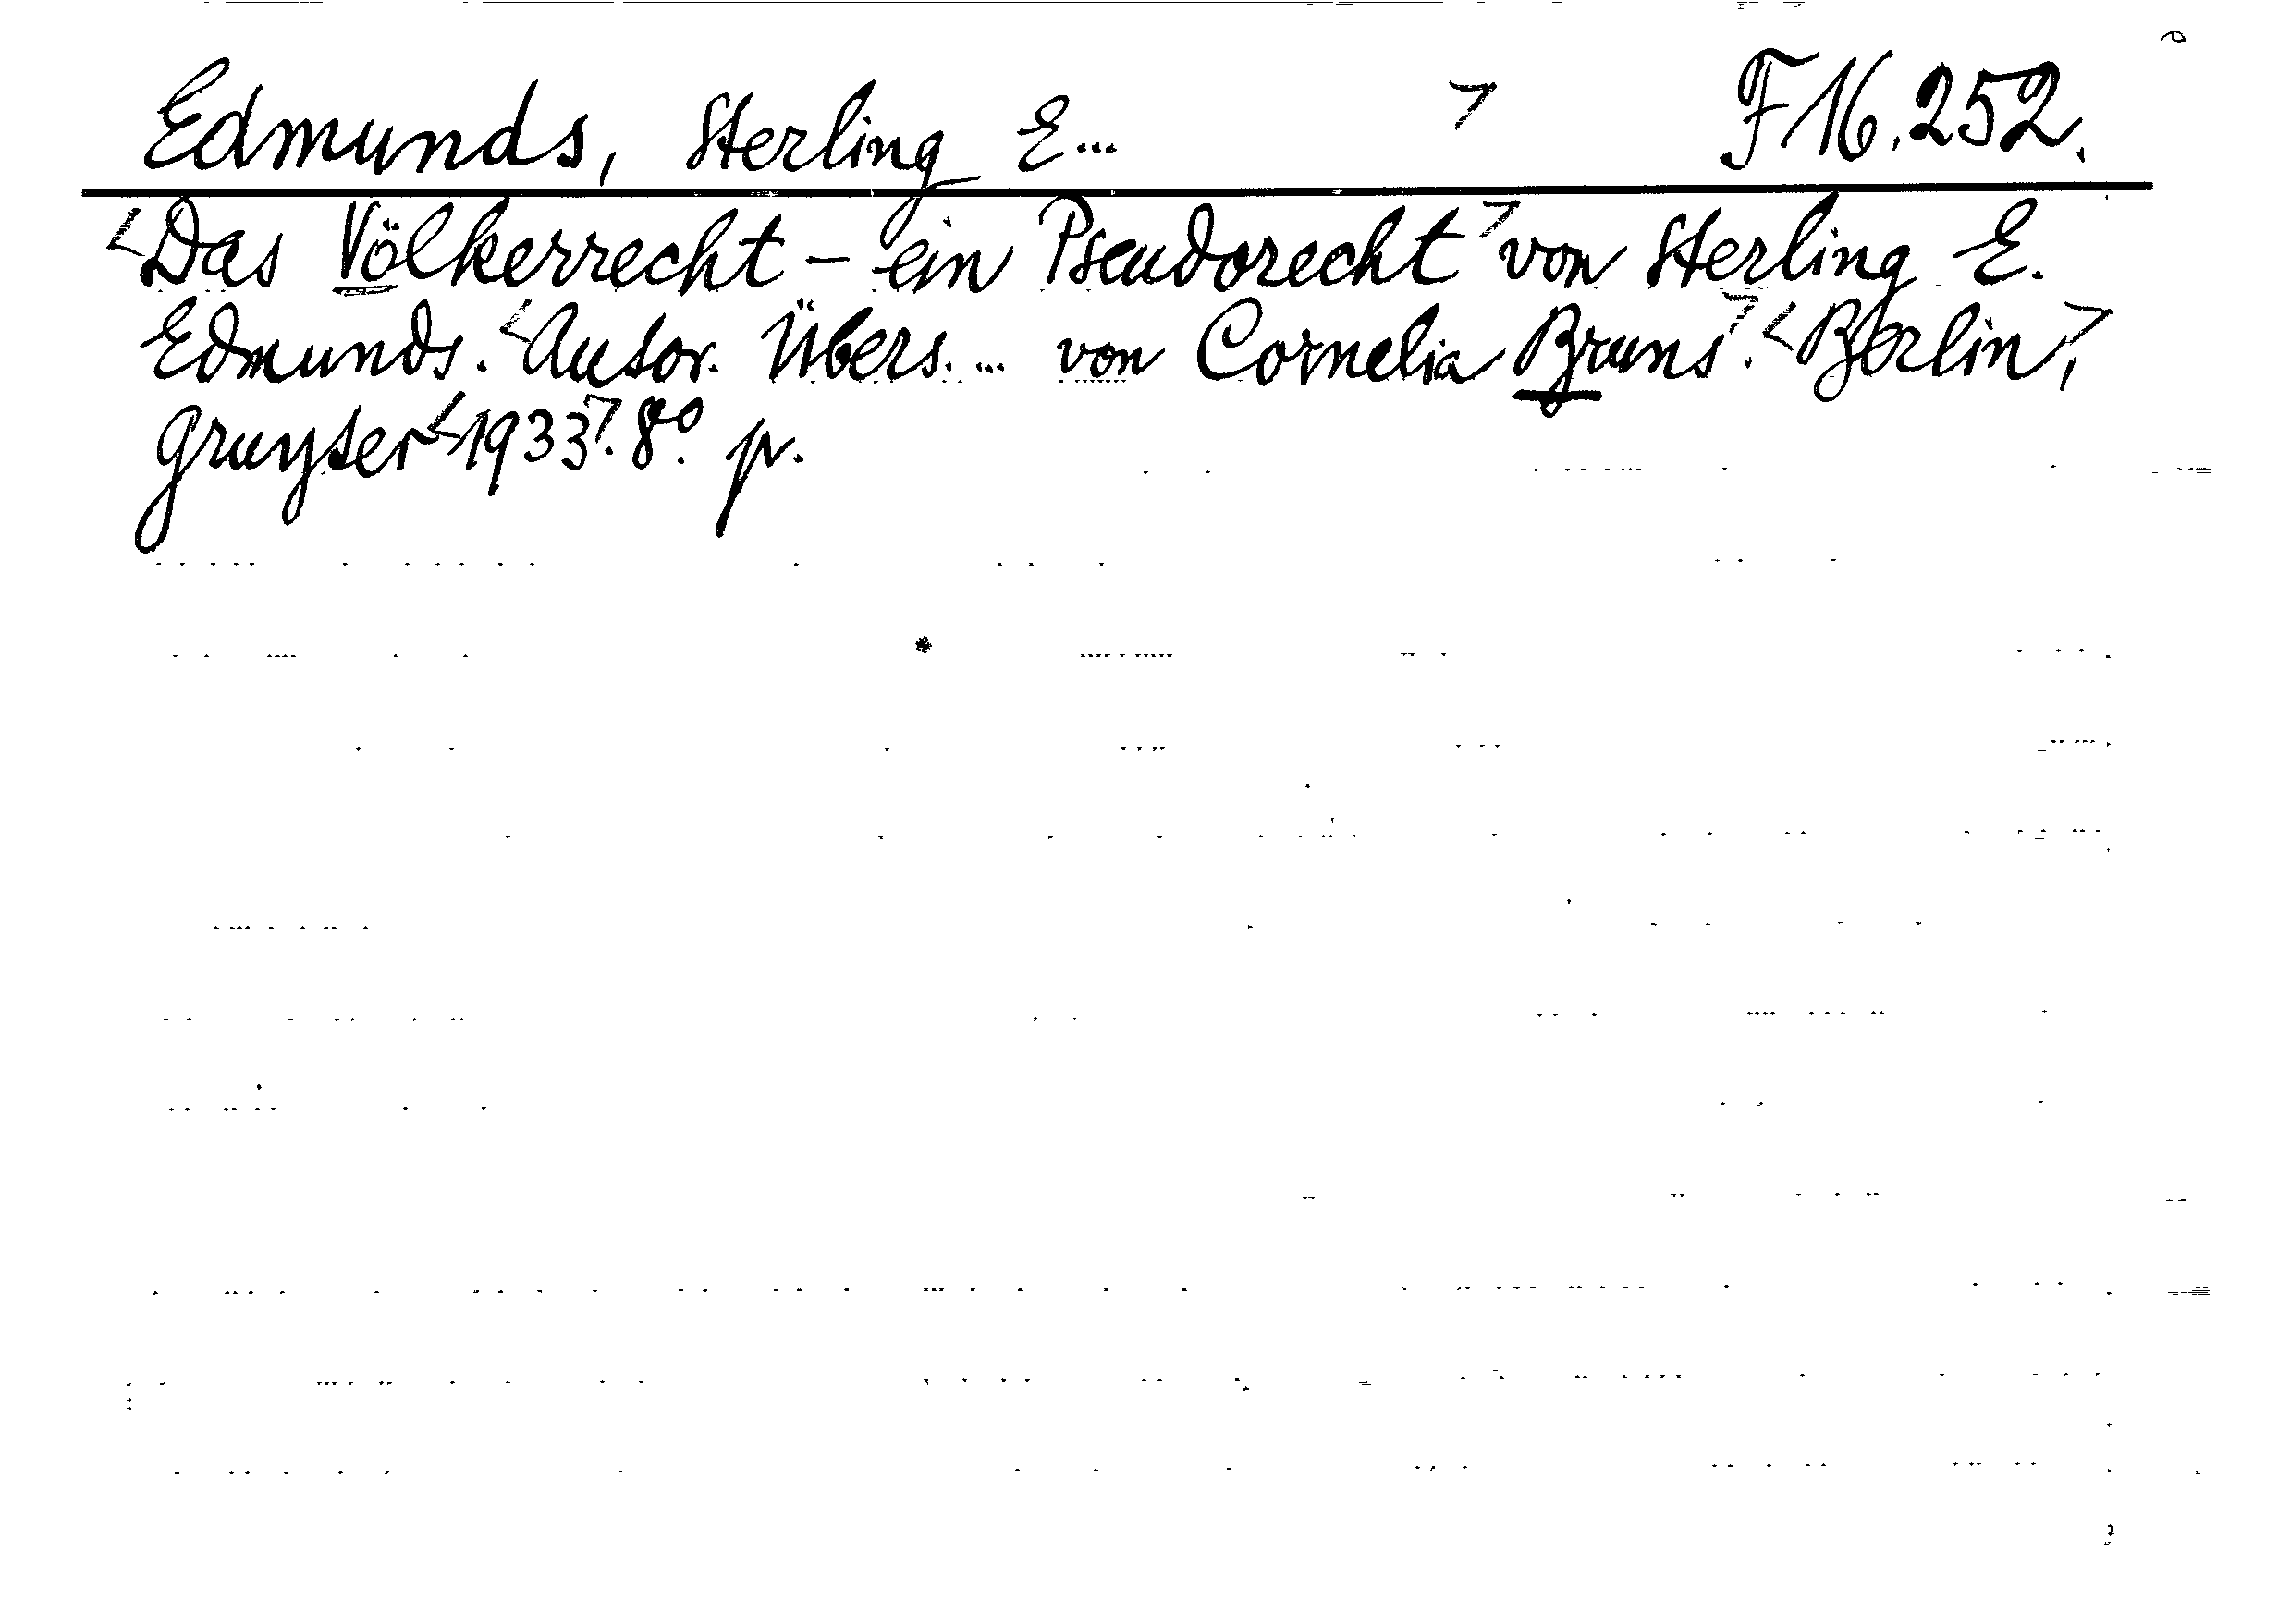 Edmunds, Sterling E... > F 16.252.
<Das Völkerrecht - ein Pseudorecht> von Sterling E.
Edmunds. <Autor. Übers. ... von Cornelia Bruns>. <Berlin>,
Gruyter <1933>. 8°. p.